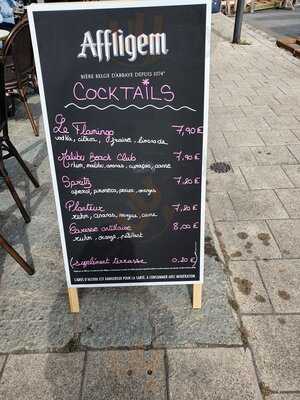 Affligem
BIÈRE BELGE D'ABBAYE DEPUIS 1074
COCKTAILS
Le Flamingo 7,90 €
vodka, citron, fraise, limonade
Malibu Beach Club 7,90 €
rhum, malibu, ananas, curaçao, canne
Spritz 7,20 €
aperol, prosecco, perrier, oranges
Planteur 7,20 €
rhum, ananas, orange, canne
Caresse antillaise 8,00 €
rhum, orange, pétillant
(suplément terrasse 0,20 €)
L'ABUS D'ALCOOL EST DANGEREUX POUR LA SANTÉ. À CONSOMMER AVEC MODÉRATION.